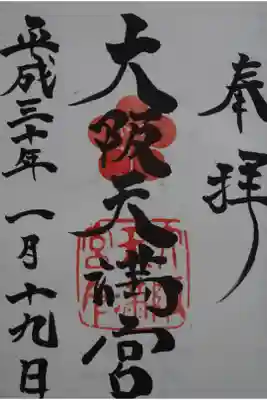 奉拝
大阪天満宮
平成三十年一月十九日